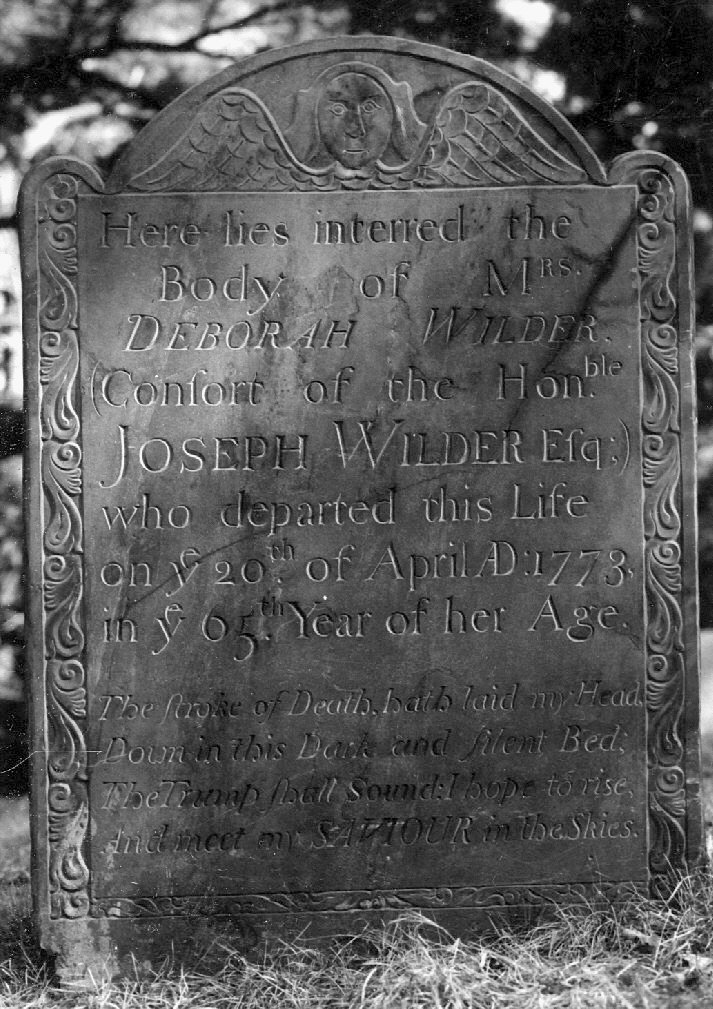 Here lies interred the
Body of Mrs.
DEBORAH WILDER.
(Conſort of the Hon.ble
JOSEPH WILDER Eſq;)
who departed this Life
on ye 20th. of April AD:1773,
in ye 65th. Year of her Age.
The ſtroke of Death, hath laid my Head,
Down in this Dark and ſilent Bed;
The Trump ſhall Sound: I hope to rise,
And meet my SAVIOUR in the Skies.